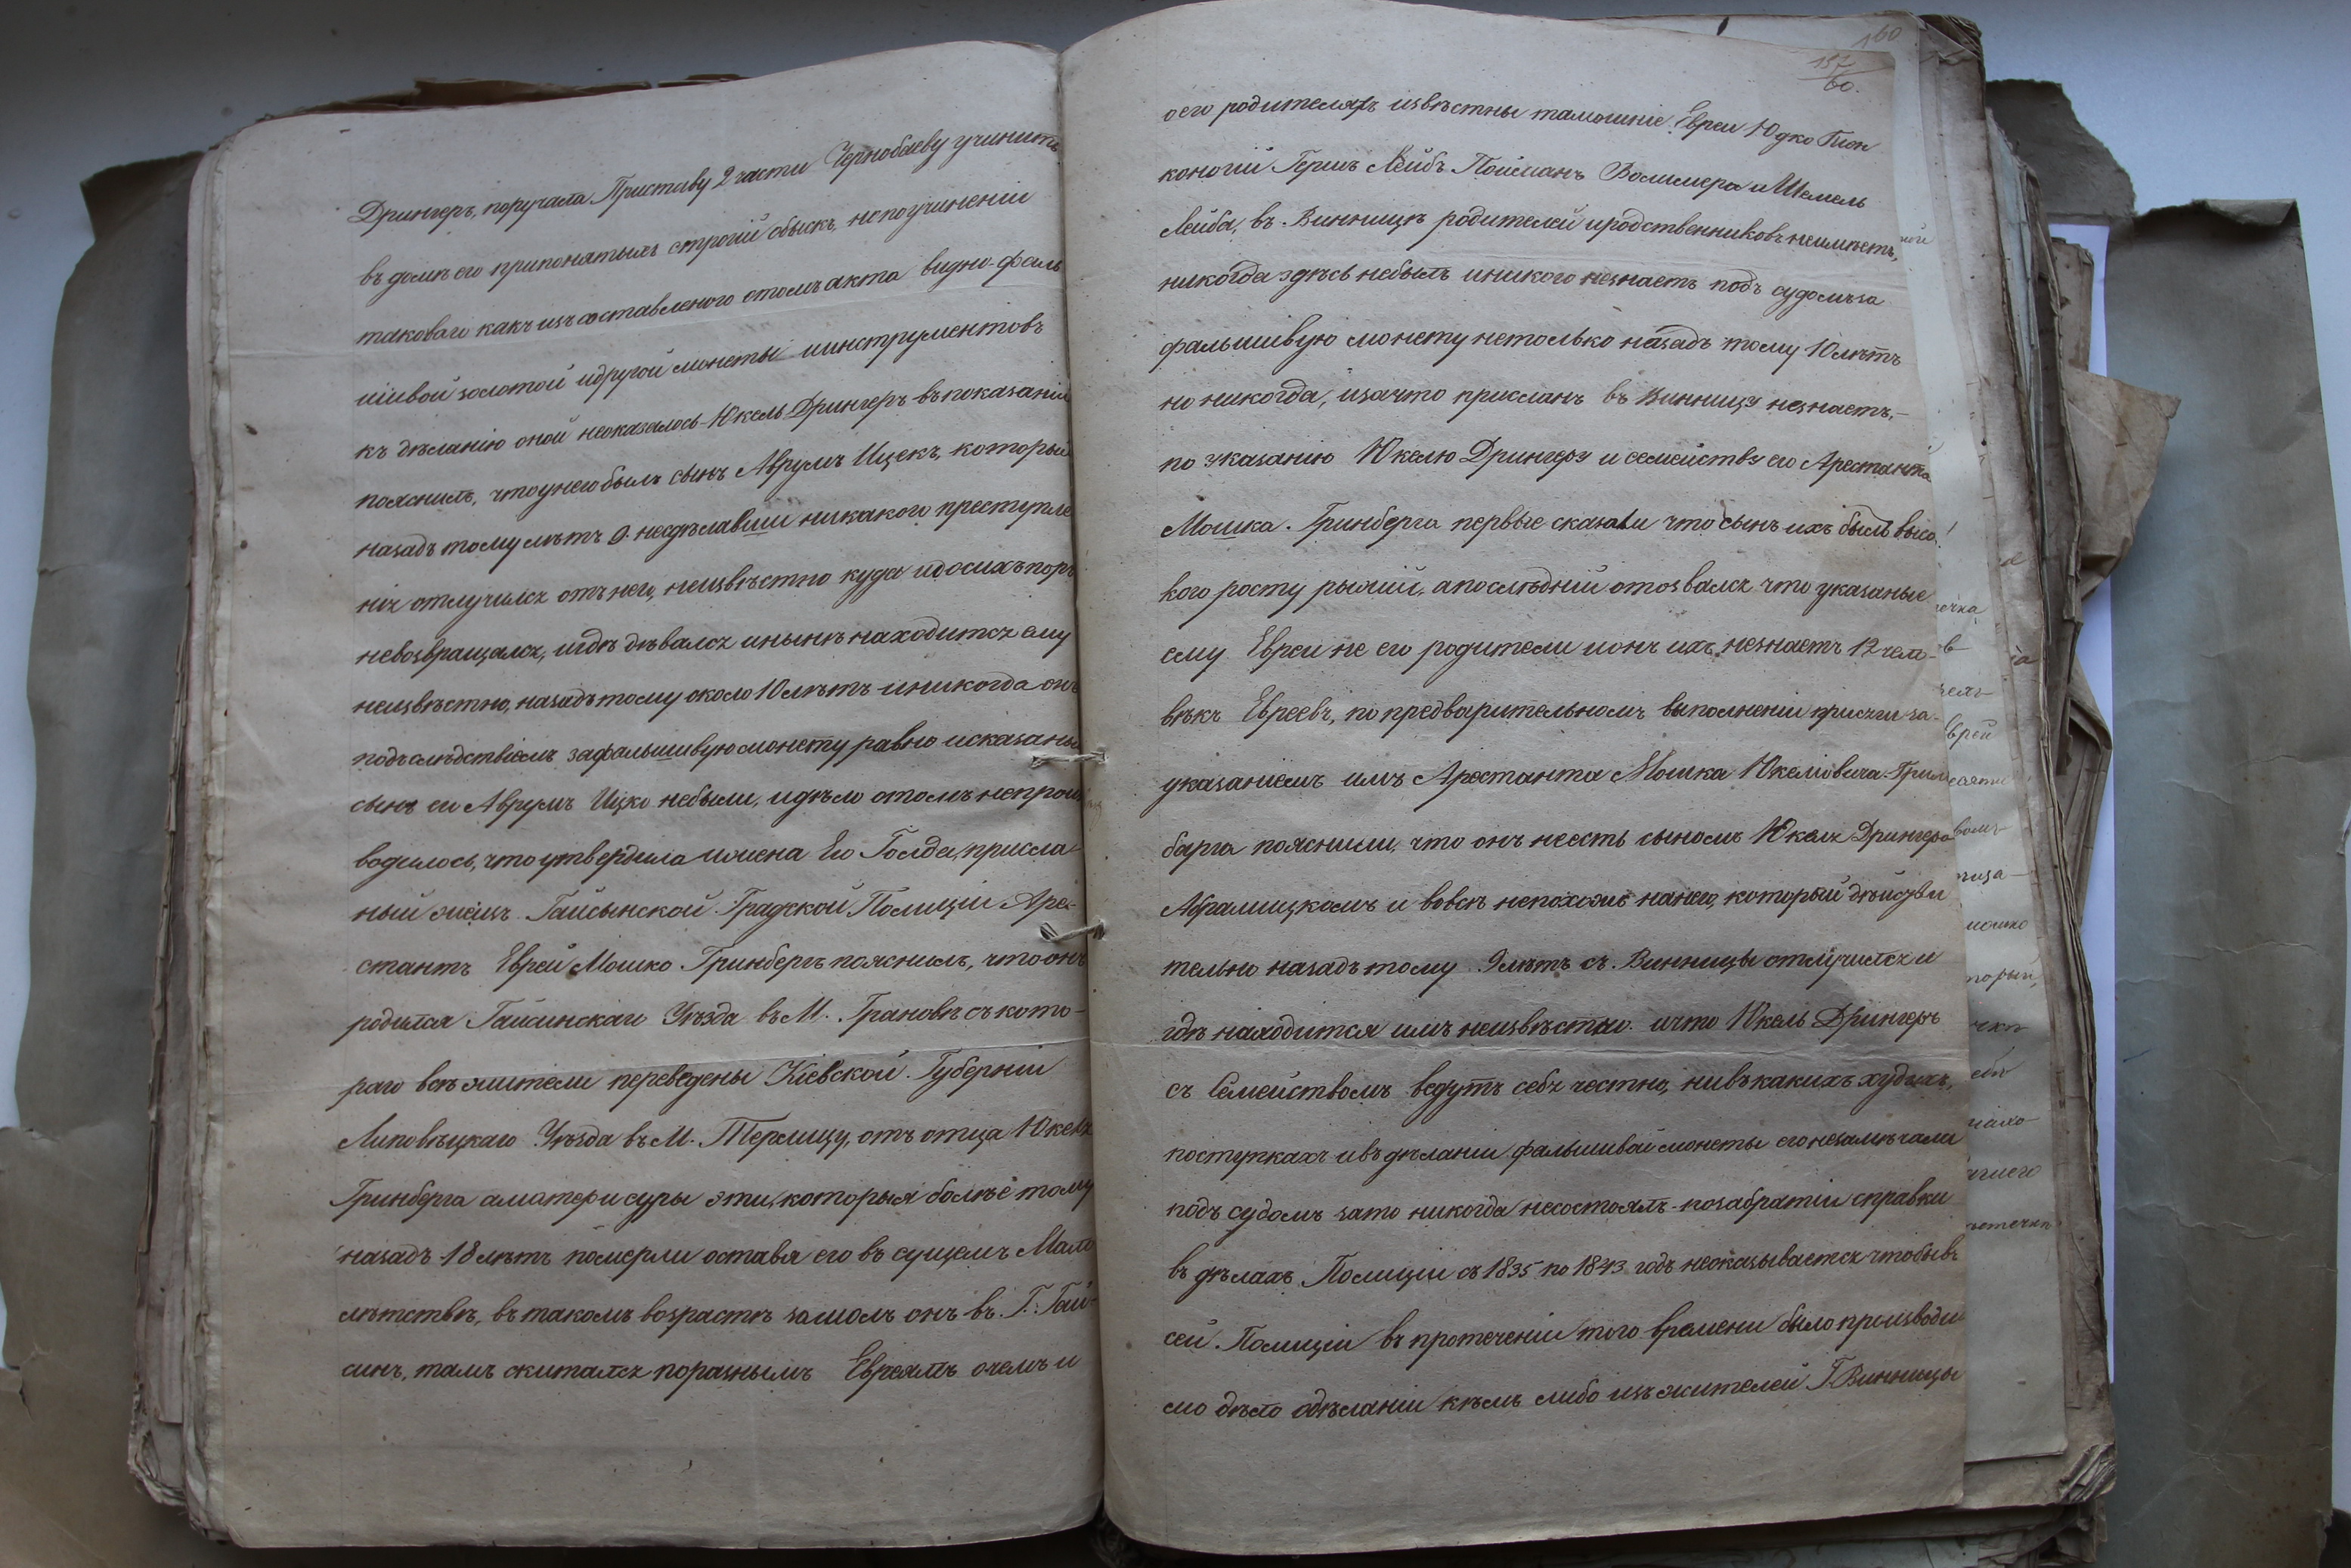 Дрингеръ, поручала Приставу 2 части Чернобаеву учинить
въ доме его припонятыхъ строгій обыскъ, непоучиненіи
таковаго какъ изъ составленого отомъ акта видно фаль
шивой золотой идругой монеты иинструментовъ
къ дѣланію оной неоказалось Юкель Дрингеръ въпоказаніи
пояснилъ, что унего былъ сынъ Аврумъ Ицекъ, который
назадъ тому лѣтъ 9. несдѣлавши никакого преступле
нія отлучился отъ него, неизвѣстно куда идосихъ поръ
невозвращался, игдѣ дѣвался инынѣ находится ему
неизвѣстно, назадъ тому около 10 лѣтъ иникогда онъ
подъ слѣдствіемъ зафальшивую монету равно исказаный
сынъ его Аврумъ Ицко небыли, идѣло отомъ непроиз
водилось, что утвердила ижена Его Голда, присла-
ный жецъ Гайсынской Градской Полиціи Аре-
стантъ Еврей Мошко Гринбергъ пояснилъ, что онъ
родился Гайсинскаго Уѣзда въ М. Грановѣ съ кото-
раго всѣ жители переведены Кіевской Губерніи
Липовецкаго Уѣзда въ М. Терлицу, отъ отца Юкеля
Гринберга аматери суры эти, которыя болѣе тому
назадъ 18 лѣтъ померли оставя его въ сущемъ Мало
лѣтствѣ, въ такомъ возрастѣ зашолъ онъ въ Г. Гай-
синъ, тамъ скитался поразнымъ Евреямъ очемъ и
160
157
60.
оего родителяхъ извѣстны тамошніе Евреи Юдко
коногій Гершъ Лейбъ Пойсманъ и Шмель
Лейба, въ Винницѣ родителей иродственниковъ неимѣетъ,
никогда здѣсь небылъ иникого незнаетъ подъ судомъ за
фальшивую монету нетолько назадъ тому 10 лѣтъ
но никогда, изачто присланъ въ Винницу незнаетъ,-
по указанію Юкелю Дрингеру и семейству его Арестанта
Мошка Гринберга первые сказали что сынъ ихъ былъ высо
кого росту рыжий, апослѣдній отозвался что указаные
ему Евреи не его родители ионъ ихъ незнаетъ 12 чело-
вѣкъ Евреевъ, по предварительномъ выполненіи присяги за
указаніемъ имъ Арестанта Мошка Юкеліовича Грин
барга пояснили, что онъ неесть сыномъ Юкеля Дрингера
Абрамицкомъ и вовсѣ непохожъ нанего, который дѣйстви
тельно назадъ тому 9 лѣтъ съ Винницы отлучился и
гдѣ находится имъ неизвѣстно. ичто Юкель Дрингеръ
съ Семействомъ ведутъ себя честно, нивъкакихъ худыхъ
поступкахъ ивъ дѣланіи фальшивой монеты его незамѣчали
подъ судомъ зато никогда несостоялъ- позабратіи справки
въ дѣлахъ Полиціи съ 1835 по 1843 годъ неоказывается чтобывъ
сей Полиціи въ протеченіи того времени было производи
мо дѣло одѣланіи кѣмъ либо изъ жителей Г. Винницы